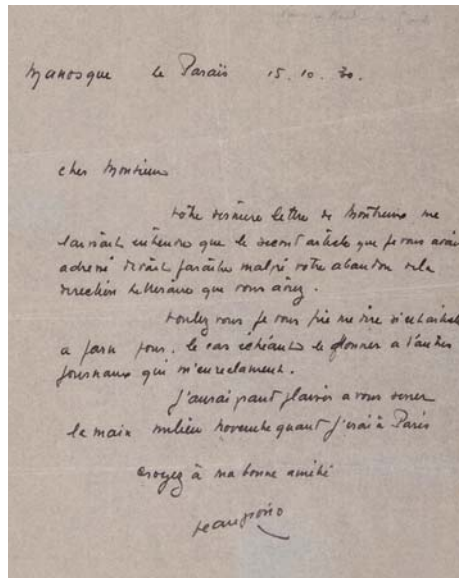 Manosque le Paraïs 15.10.30.
cher Monsieur
votre dernière lettre de Montreux me
laissait entendre que le second article que je vous avais
adressé devait paraître malgré votre abandon de la
direction littéraire que vous aviez.
Voulez vous je vous prie me dire si cet article
a paru pour, le cas échéant le donner à d'autres
journaux qui m'en réclament.
J'aurai grand plaisir à vous serrer
la main milieu novembre quant j'irai à Paris
croyez à ma bonne amitié
Jean Giono